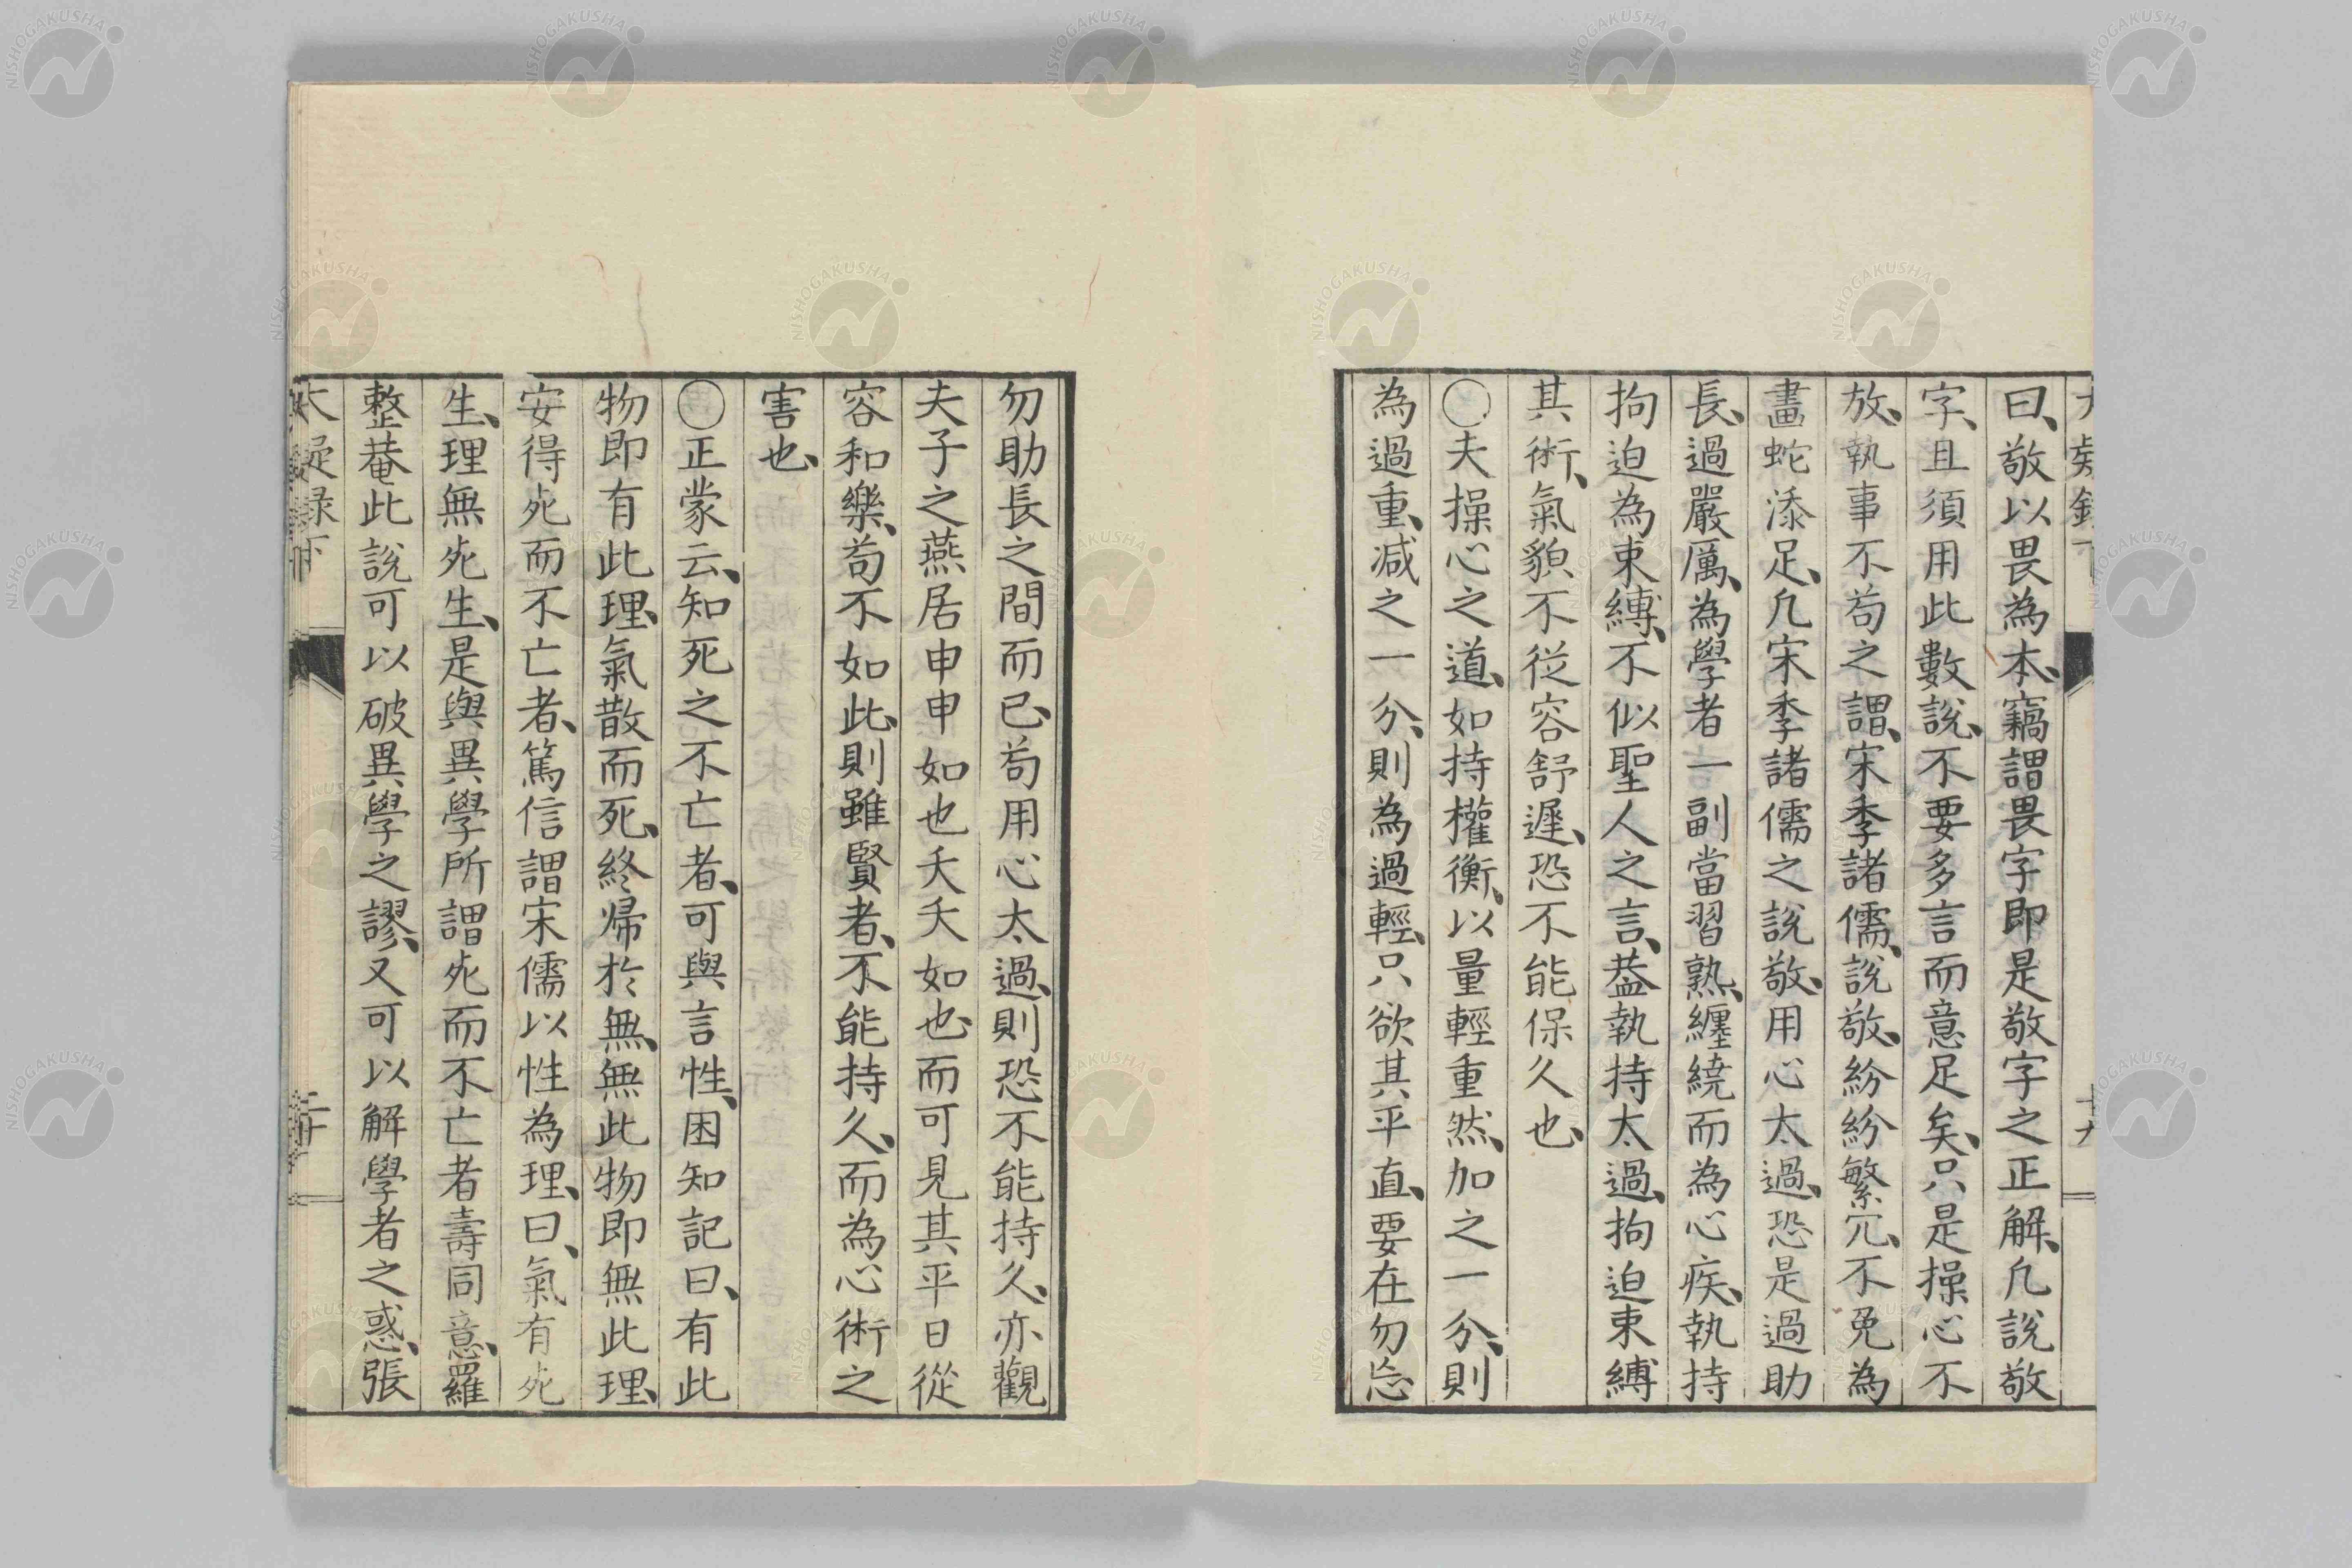 大疑錄下
十九
曰、敬以畏為本、竊謂畏字即是敬字之正解、凢說敬
字、且須用此數說、不要多言而意足矣、只是操心不
放、執事不苟之謂、宋季諸儒、說敬、紛紛繁冗、不免為
畵蛇添足、凢宋季諸儒之說敬、用心太過、恐是過助
長、過嚴厲、為學者一副當習熟、纏繞而為心疾、執持
拘迫為束縛、不似聖人之言、葢執持太過、拘迫束縛
其術、氣貌不從容舒遲、恐不能保久也、
○夫操心之道、如持權衡、以量輕重然、加之一分、則
為過重、减之一分、則為過輕、只欲其平直、要在勿忘
勿助長之間而已、苟用心太過、則恐不能持久、亦觀
夫子之燕居申申如也夭夭如也、而可見其平日從
容和樂、苟不如此、則雖賢者、不能持久、而為心術之
害也、
○正蒙云、知死之不亡者、可與言性、困知記曰、有此
物即有此理、氣散而死、終帰於無、無此物即無此理、
安得死而不亡者、篤信謂宋儒以性為理、曰、氣有死
生、理無死生、是與異學所謂死而不亡者壽同意、羅
整菴此說可以破異學之謬、又可以解學者之惑、張
大疑録下
二十
NISHOGAKUSHA